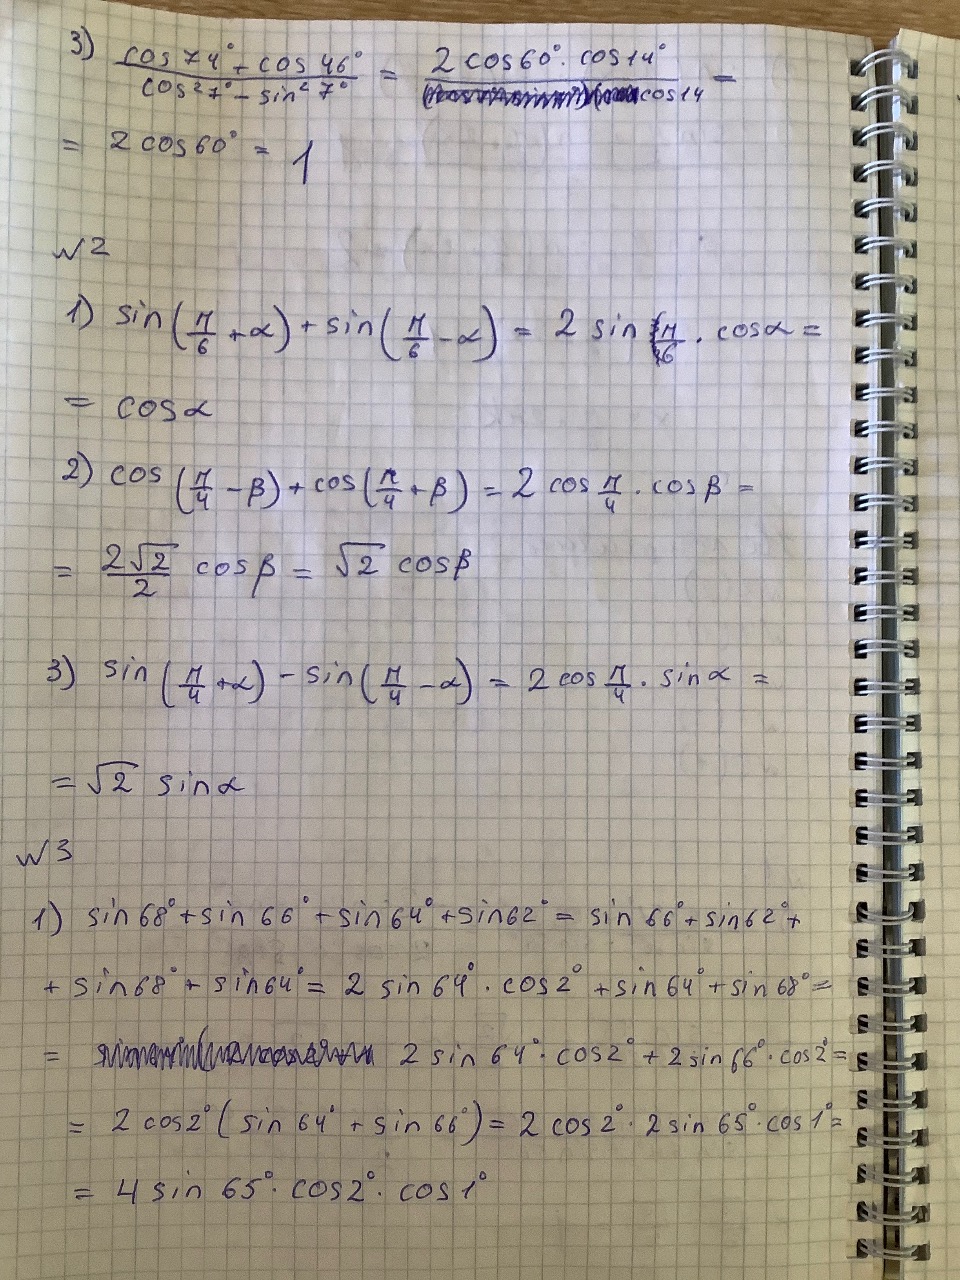 3) (cos 74° + cos 46°)/(cos² 7° - sin² 7°) = (2 cos 60° · cos 14°)/(cos 14) =
= 2 cos 60° = 1
N2
1) sin(π/6 + α) + sin(π/6 - α) = 2 sin π/6 · cos α =
= cos α
2) cos(π/4 - β) + cos(π/4 + β) = 2 cos π/4 · cos β =
= 2√2/2 cos β = √2 cos β
3) sin(π/4 + α) - sin(π/4 - α) = 2 cos π/4 · sin α =
= √2 sin α
N3
1) sin 68° + sin 66° + sin 64° + sin 62° = sin 66° + sin 62° +
+ sin 68° + sin 64° = 2 sin 64° · cos 2° + sin 64° + sin 68° =
= 2 sin 64° · cos 2° + 2 sin 66° · cos 2° =
= 2 cos 2° (sin 64° + sin 66°) = 2 cos 2° · 2 sin 65° · cos 1° =
= 4 sin 65° · cos 2° · cos 1°